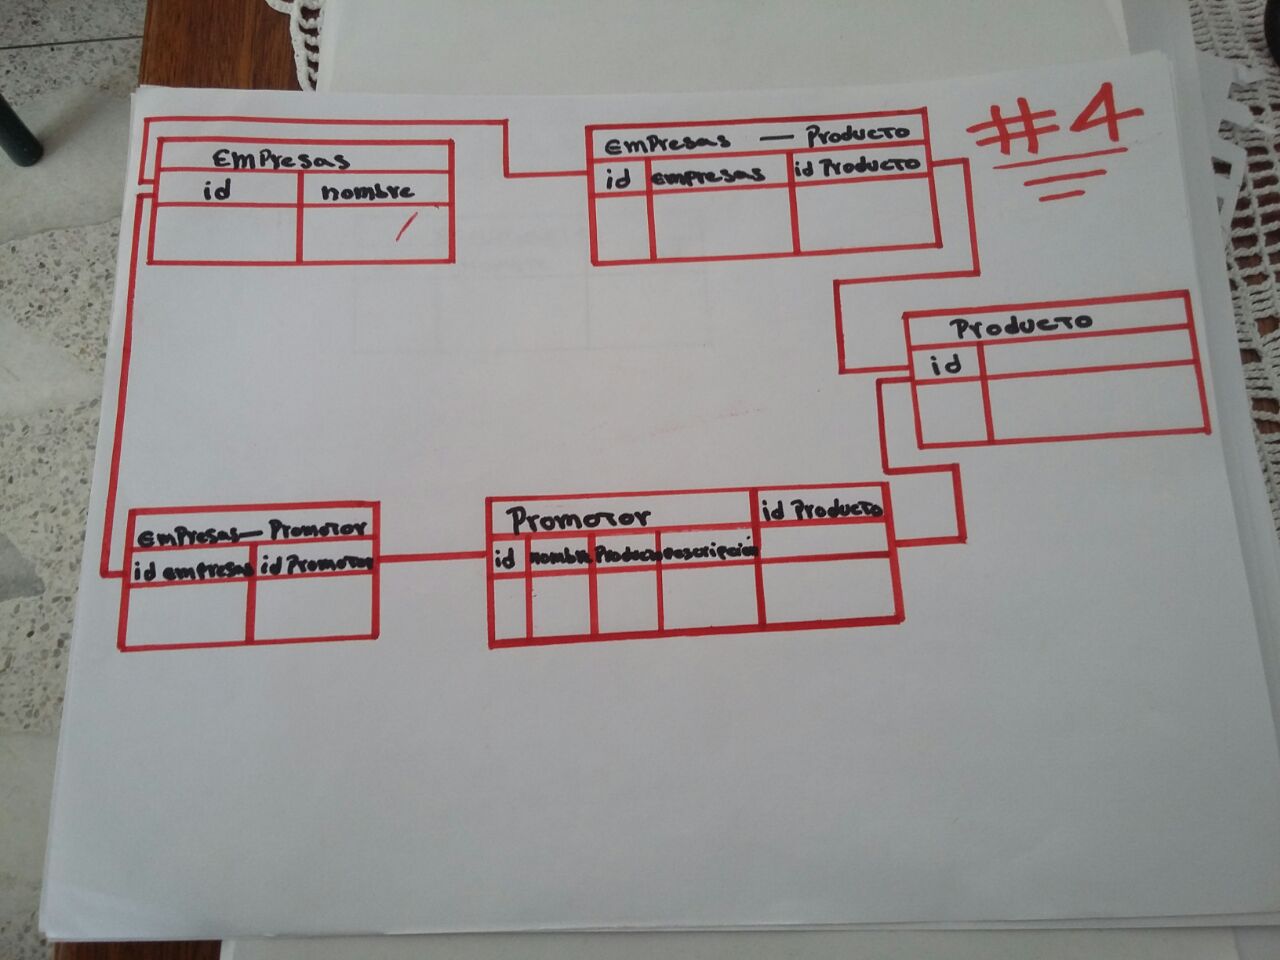 #4
Empresas
id nombre
Empresas — Producto
id empresas id Producto
Producto
id
Empresas — Promotor
id empresas id Promotor
Promotor id Producto
id nombre Producto Descripción